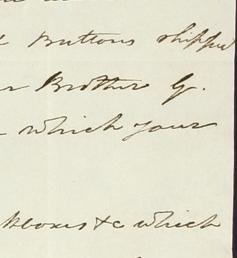 Buttons shipped
Brother G.
which your
boxes &c which